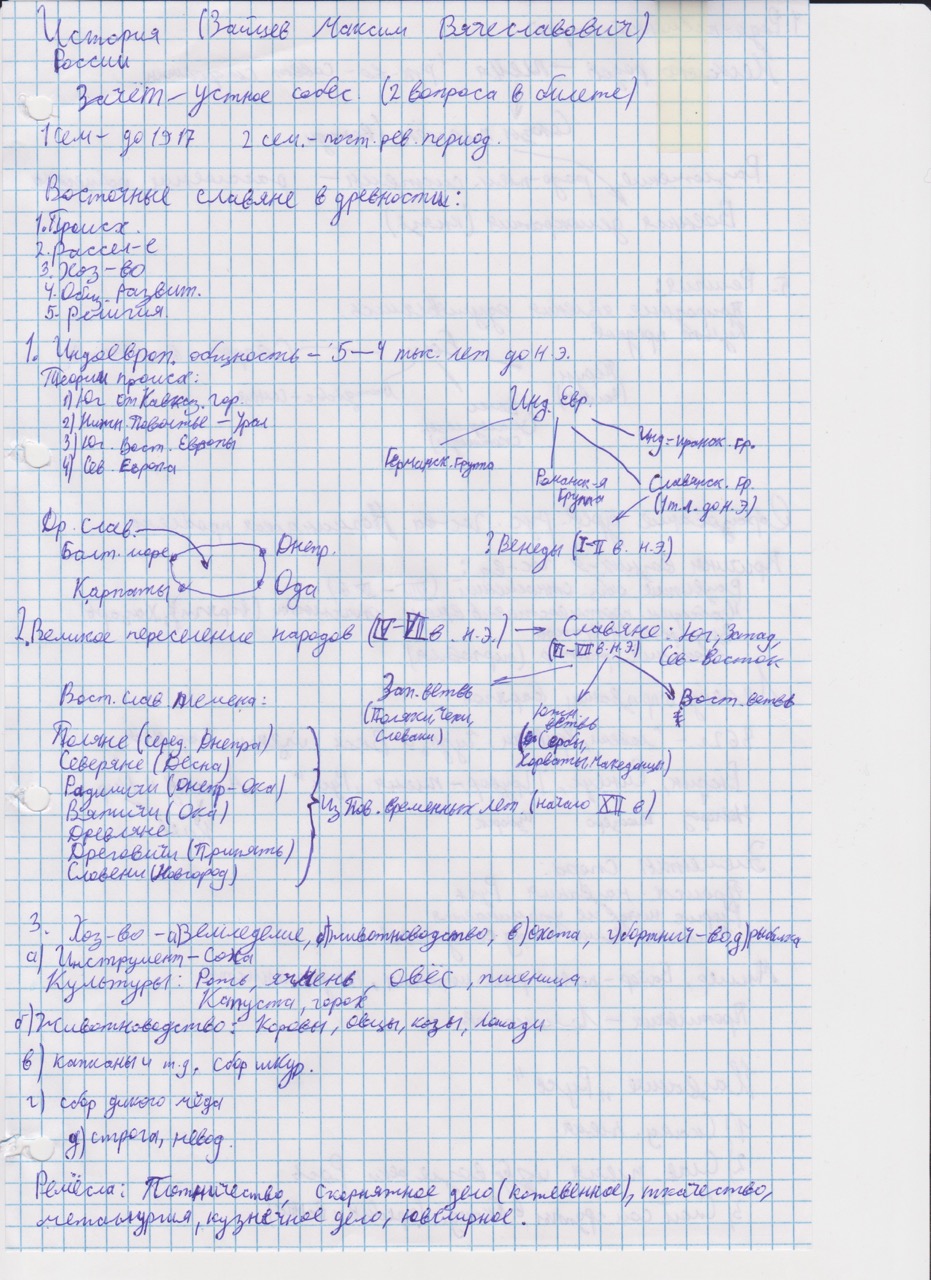 История (Зайцев Максим Вячеславович)
России
Зачёт – Устное собес. (2 вопроса в билете)
1 сем – до 1917 2 сем. – пост. рев. период.
Восточные славяне в древности:
1. Происх.
2. Рассел-е
3. Хоз-во
4. Общ. развит.
5. Религия.
1. Индоевроп. общность – 5–4 тыс. лет до н.э.
Теории происх:
1) Юг от Кавказ. гор.
2) Нижн. Поволжье – Урал
3) Юг. Вост. Европы
4) Сев. Европа
Инд. Евр.
Германск. Группа
Романск-я Группа
Славянск. Гр. (1 т.л. до н.э)
Инд-иранск. Гр.
? Венеды (I–II в. н.э.)
Др. слав.
Балт. море
Днепр.
Карпаты
Ода
2. Великое переселение народов (IV–VII в. н.э.) → Славяне: Юг, Запад,
(VI–VII в. н.э.) Сев-Восток
Зап. ветвь
(Поляки, Чехи,
Словаки)
Южн. ветвь
(Сербы,
Хорваты, Македонцы)
Вост. ветвь
Вост. слав племена:
Поляне (серед. Днепра)
Северяне (Десна)
Радимичи (Днепр-Ока)
Вятичи (Ока)
Древляне
Дреговичи (Припять)
Словени (Новгород)
Из Пов. Временных лет. (начало XII в)
3. Хоз-во – а) Земледелие, б) животноводство, в) охота, г) бортнич-во, д) рыбалка
а) Инструмент – Соха
Культуры: Рожь, ячмень, овёс, пшеница.
Капуста, горох
б) Животноводство: Коровы, овцы, козы, лошади
в) капканы и т.д, сбор шкур.
г) сбор дикого мёда
д) строга, невод.
Ремёсла: Плотничество, скорняжное дело (кожевенное), ткачество,
металлургия, кузнечное дело, ювелирное.